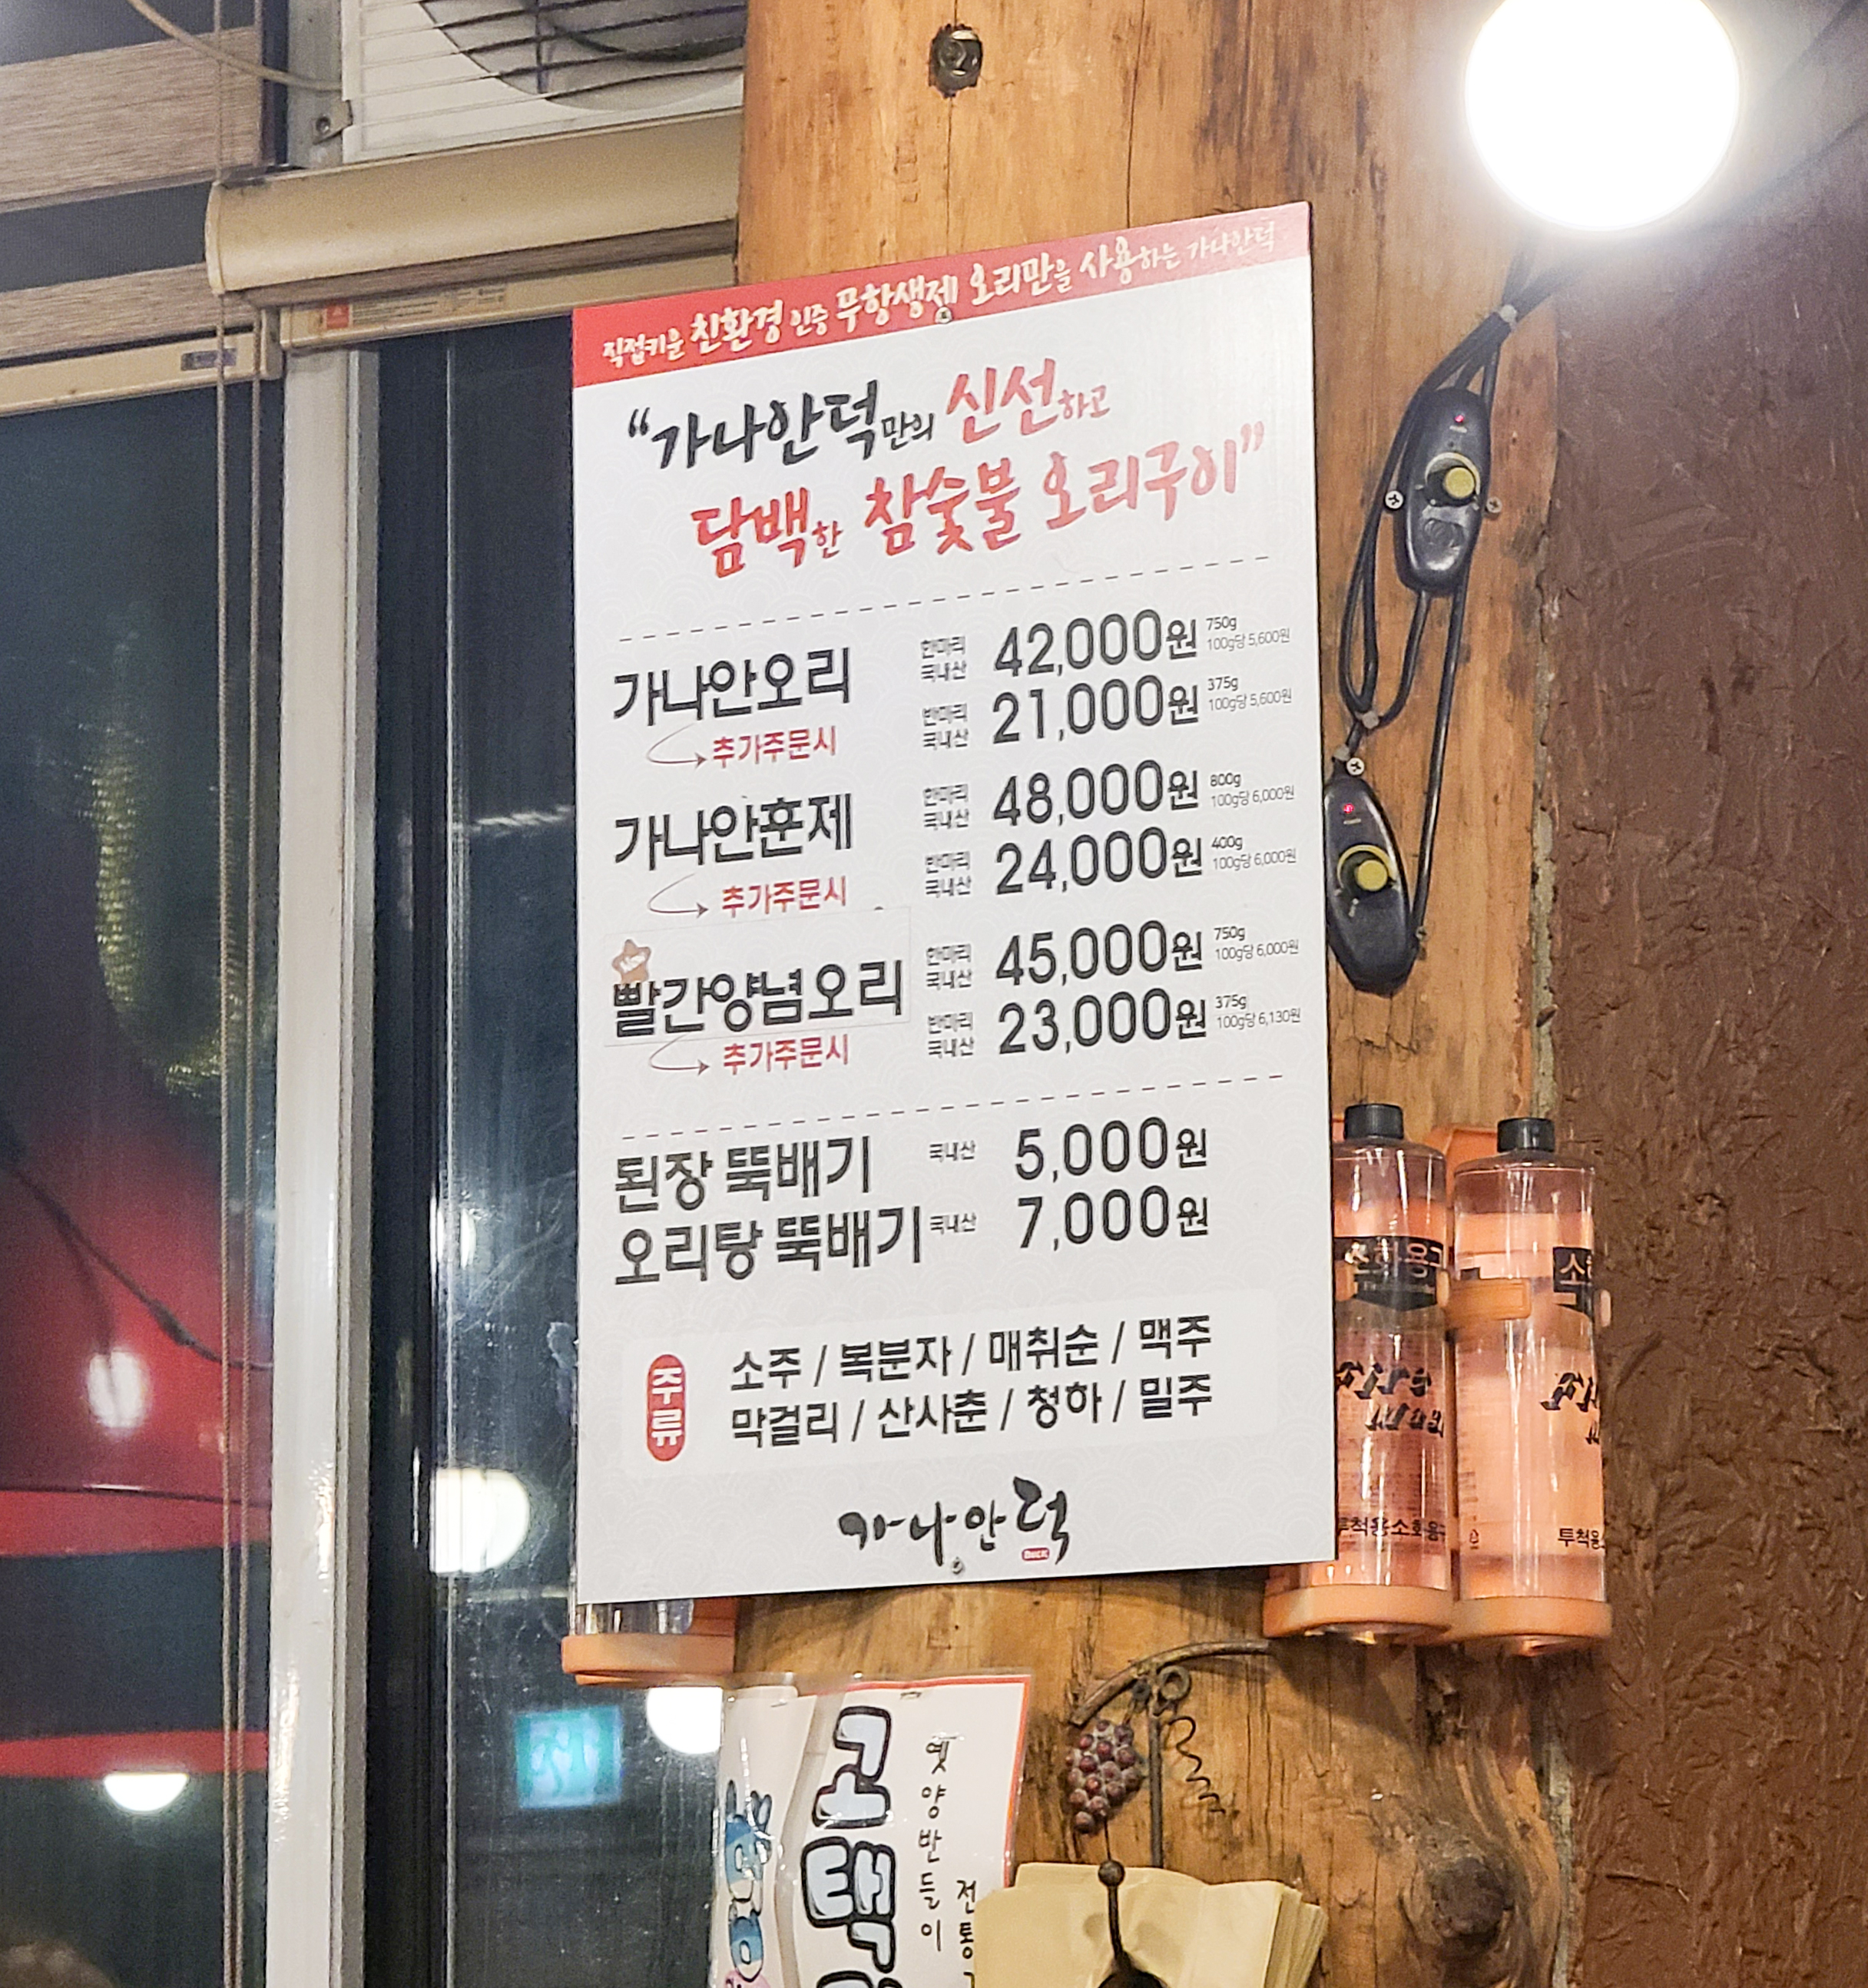 직접키운 친환경 인증 무항생제 오리만을 사용하는 가나안덕
“가나안덕만의 신선하고
담백한 참숯불 오리구이”
가나안오리
한마리 국내산 42,000원 750g 100g당 5,600원
추가주문시
반마리 국내산 21,000원 375g 100g당 5,600원
가나안훈제
한마리 국내산 48,000원 800g 100g당 6,000원
추가주문시
반마리 국내산 24,000원 400g 100g당 6,000원
빨간양념오리
한마리 국내산 45,000원 750g 100g당 6,000원
추가주문시
반마리 국내산 23,000원 375g 100g당 6,130원
된장 뚝배기 국내산 5,000원
오리탕 뚝배기 국내산 7,000원
주류
소주 / 복분자 / 매취순 / 맥주
막걸리 / 산사춘 / 청하 / 밀주
가나안덕
투척용소화용구
고택
옛양반들이
전통